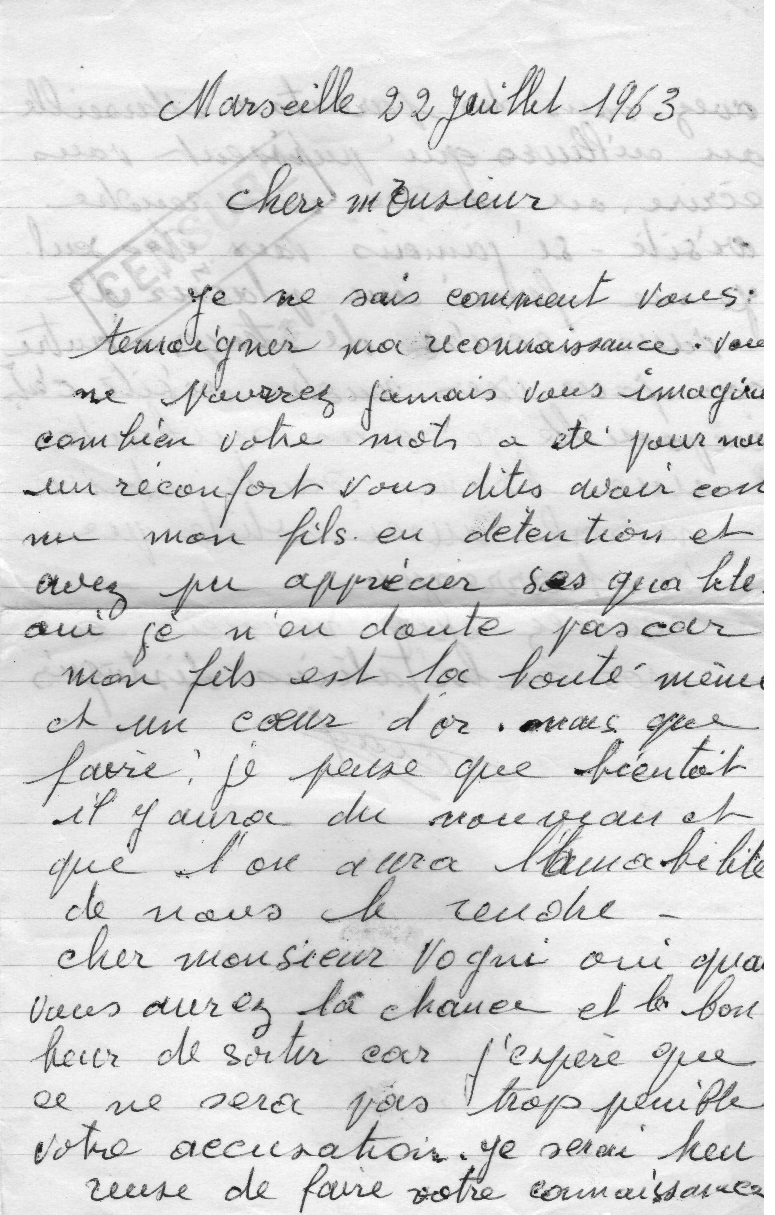 Marseille 22 Juillet 1963
cher monsieur
CENSURE
je ne sais comment vous.
temoigner ma reconnaissance. vou
ne pourrez jamais vous imagine
combien votre mots a eté pour nou
un réconfort vous dites avoir con
nu mon fils. en détention et
avez pu apprécier ses qualité
oui je n'en doute pas car
mon fils est la bonté même
et un cœur d'or. mais que
faire? je pense que bientôt
il y aura du nouveau et
que l'on aura l'amabilité
de nous le rendre -
cher monsieur Vogni oui qua
vous aurez la chance et le bon
heur de sortir car j'espère que
ce ne sera pas trop penible
votre accusation. je serai heu
reuse de faire votre connaissance